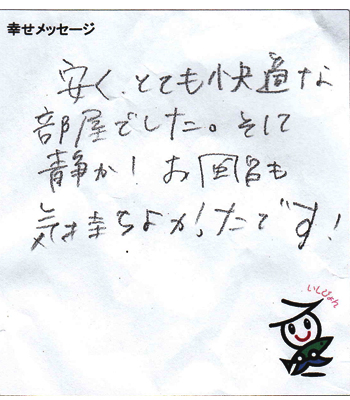 幸せメッセージ
安く、とても快適な
部屋でした。そして
静か！お風呂も
気持ちよかったです！